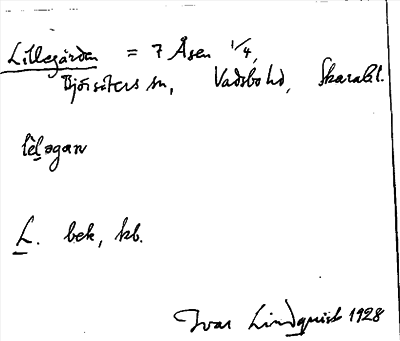 Lillegården = 7 Åsen 1/4,
Björsäters sn, Vadsbo hd, Skarabl.
lèl̲əgaɴ
L. bek, kb.
Ivar Lindquist 1928